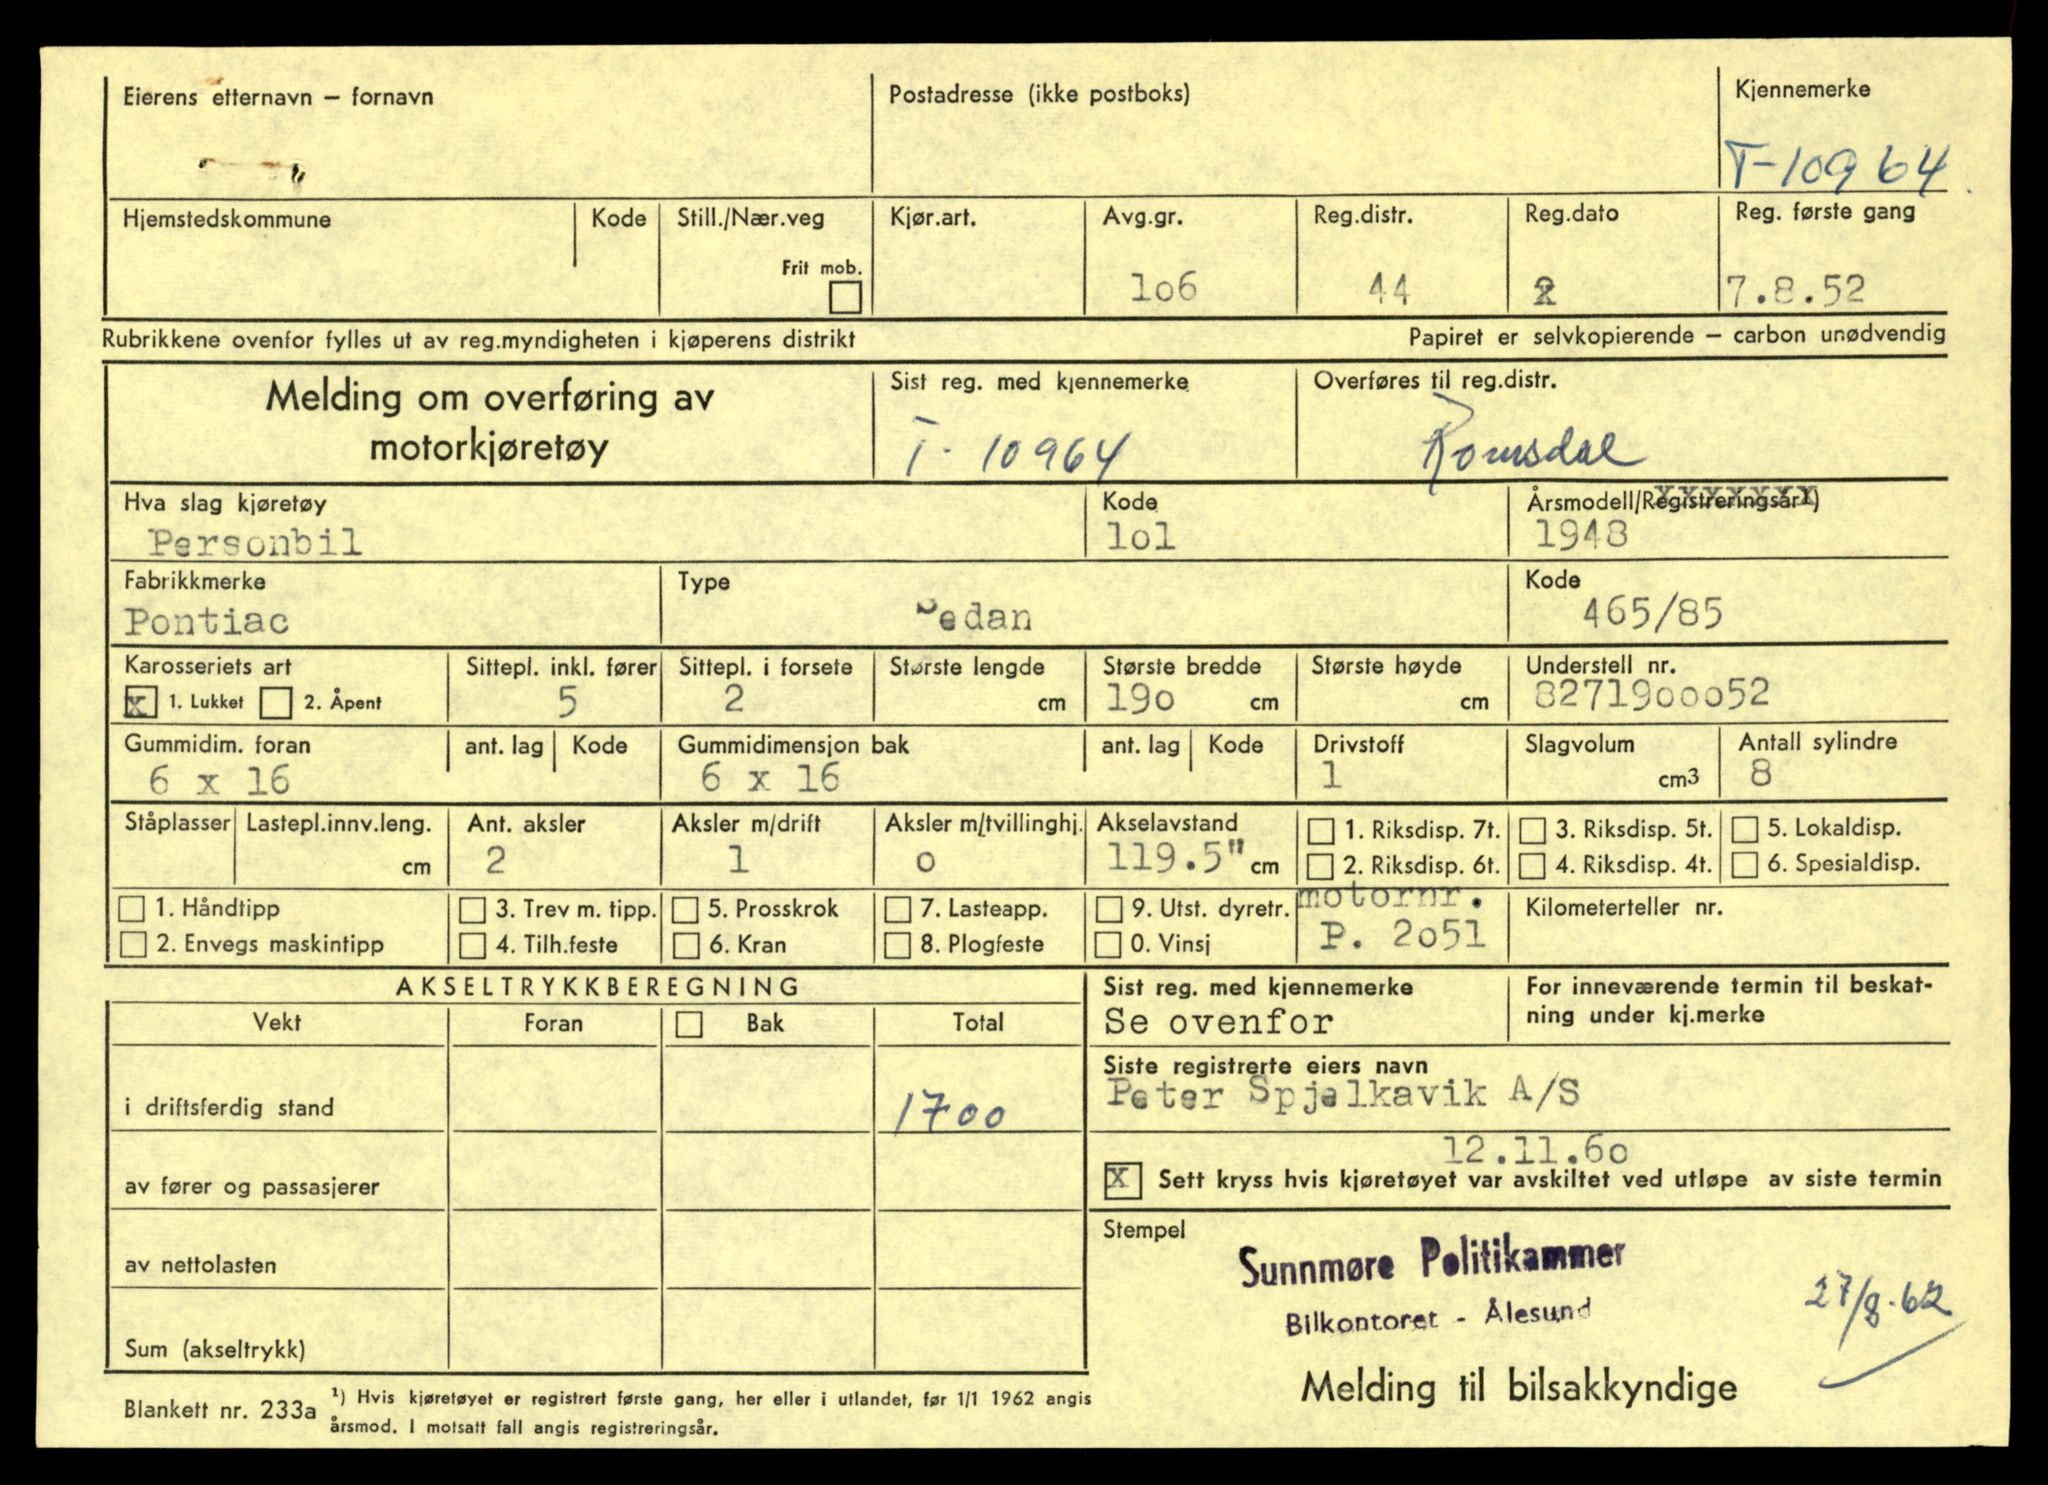 Eierens etternavn – fornavn
Postadresse (ikke postboks)
Kjennemerke
T-10964
Hjemstedskommune
Kode
Still./Nær.veg
Frit mob.
Kjør.art.
Avg.gr.
1o6
Reg.distr.
44
Reg.dato
Reg. første gang
7.8.52
Rubrikkene ovenfor fylles ut av reg.myndigheten i kjøperens distrikt
Papiret er selvkopierende – carbon unødvendig
Melding om overføring av
motorkjøretøy
Sist reg. med kjennemerke
T-10964
Overføres til reg.distr.
Romsdal
Hva slag kjøretøy
Personbil
Kode
1o1
Årsmodell/Registreringsår¹)
1948
Fabrikkmerke
Pontiac
Type
Sedan
Kode
465/85
Karosseriets art
x 1. Lukket 2. Åpent
Sittepl. inkl. fører
5
Sittepl. i forsete
2
Største lengde
cm
Største bredde
19o cm
Største høyde
cm
Understell nr.
82719ooo52
Gummidim. foran
6 x 16
ant. lag
Kode
Gummidimensjon bak
6 x 16
ant. lag
Kode
Drivstoff
1
Slagvolum
cm3
Antall sylindre
8
Ståplasser
Lastepl.innv.leng.
cm
Ant. aksler
2
Aksler m/drift
1
Aksler m/tvillinghj.
o
Akselavstand
119.5" cm
1. Riksdisp. 7t. 3. Riksdisp. 5t. 5. Lokaldisp.
2. Riksdisp. 6t. 4. Riksdisp. 4t. 6. Spesialdisp.
1. Håndtipp 3. Trev m. tipp. 5. Prosskrok 7. Lasteapp. 9. Utst. dyretr.
2. Envegs maskintipp 4. Tilh.feste 6. Kran 8. Plogfeste 0. Vinsj
motornr.
P. 2o51
Kilometerteller nr.
AKSELTRYKKBEREGNING
Vekt Foran Bak Total
i driftsferdig stand 1700
av fører og passasjerer
av nettolasten
Sum (akseltrykk)
Sist reg. med kjennemerke
Se ovenfor
For inneværende termin til beskat-
ning under kj.merke
Siste registrerte eiers navn
Peter Spjelkavik A/S
12.11.6o
X Sett kryss hvis kjøretøyet var avskiltet ved utløpe av siste termin
Stempel
Sunnmøre Politikammer
Bilkontoret - Ålesund
27/8-62
Melding til bilsakkyndige
Blankett nr. 233a
¹) Hvis kjøretøyet er registrert første gang, her eller i utlandet, før 1/1 1962 angis
årsmod. I motsatt fall angis registreringsår.